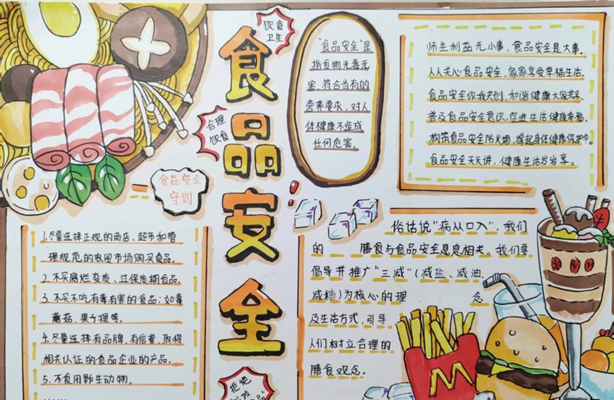 食品安全
饮食
卫生
合理
饮食
食品安全
守则
"食品安全"是
指食物无毒无
害，符合当有的
营养要求，对人
体健康不造成
任何危害。
师生利益无小事，食品安全是大事。
人人关心食品安全，家家享受幸福生活。
食品安全你我共创，和谐健康大家共享。
普及食品安全意识，促进生活健康幸福。
构筑食品安全防火墙，撑起身体健康保护伞。
食品安全天天讲，健康生活岁岁享。
1.尽量选择正规的商店、超市和管
理规范的农贸市场购买食品。
2.不买腐烂变质、过保质期食品。
3.不买不吃有毒有害的食品：如毒
蘑菇、果子狸等。
4.尽量选择有品牌、有信誉、取得
相关认证的食品企业的产品。
5.不食用野生动物。
俗话说"病从口入"，我们
的 膳食与食品安全是息息相关。我们要
倡导并推广"三减"（减盐、减油、
减糖）为核心的理 念
及生活方式，引导
人们树立合理的
膳食观念。
M
拒绝